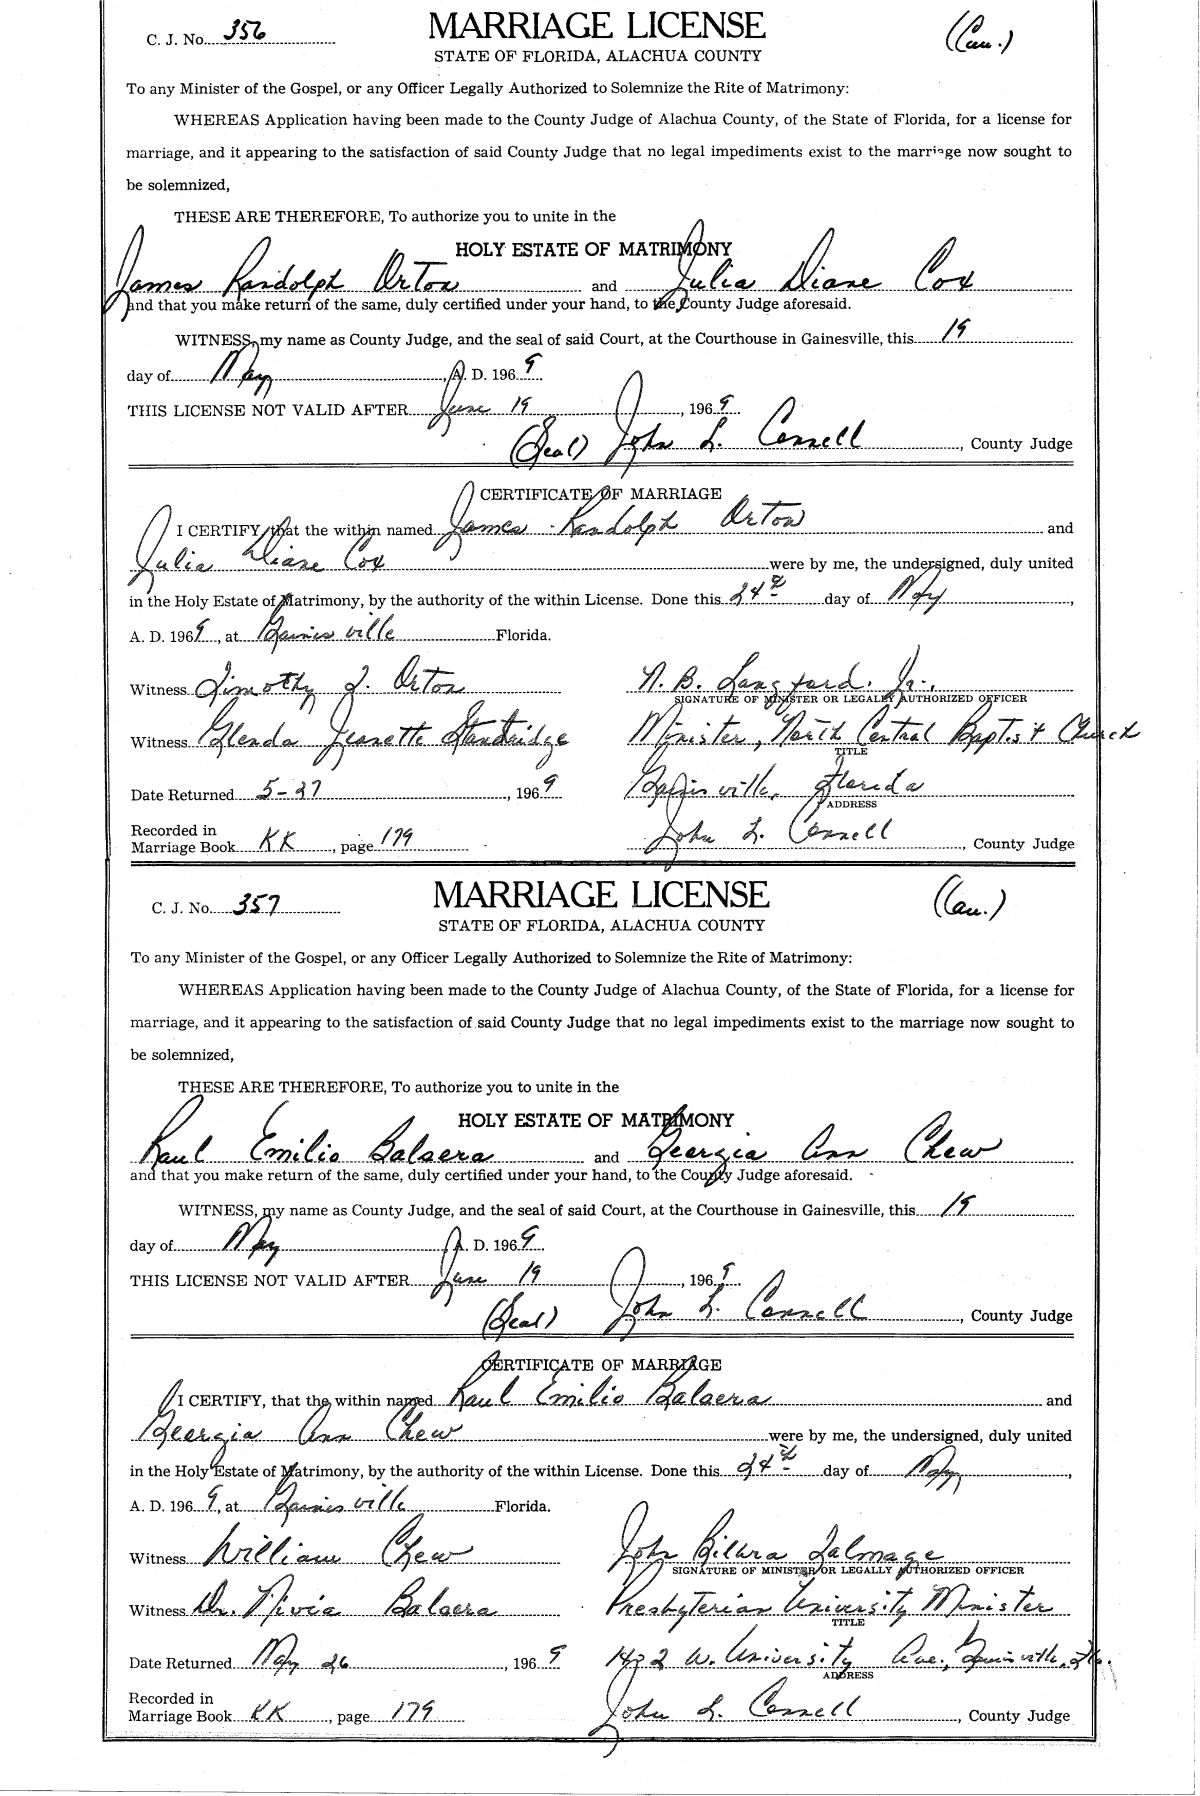 C. J. No. 356 MARRIAGE LICENSE (Cau.)
STATE OF FLORIDA, ALACHUA COUNTY
To any Minister of the Gospel, or any Officer Legally Authorized to Solemnize the Rite of Matrimony:
WHEREAS Application having been made to the County Judge of Alachua County, of the State of Florida, for a license for
marriage, and it appearing to the satisfaction of said County Judge that no legal impediments exist to the marriage now sought to
be solemnized,
THESE ARE THEREFORE, To authorize you to unite in the
HOLY ESTATE OF MATRIMONY
James Randolph Orton and Julia Diane Cox
and that you make return of the same, duly certified under your hand, to the County Judge aforesaid.
WITNESS, my name as County Judge, and the seal of said Court, at the Courthouse in Gainesville, this 19
day of May, A. D. 1969.
THIS LICENSE NOT VALID AFTER June 19, 1969.
(Seal) John L. Connell, County Judge
CERTIFICATE OF MARRIAGE
I CERTIFY, that the within named James Randolph Orton and
Julia Diane Cox were by me, the undersigned, duly united
in the Holy Estate of Matrimony, by the authority of the within License. Done this 24th day of May,
A. D. 1969, at Gainesville Florida.
Witness Timothy J. Orton N. B. Langford, Jr.,
SIGNATURE OF MINISTER OR LEGALLY AUTHORIZED OFFICER
Witness Glenda Jeanette Standridge Minister, North Central Baptist Church
TITLE
Date Returned 5-27, 1969 Gainesville, Florida
ADDRESS
Recorded in
Marriage Book KK, page 179 John L. Connell, County Judge
C. J. No. 357 MARRIAGE LICENSE (Cau.)
STATE OF FLORIDA, ALACHUA COUNTY
To any Minister of the Gospel, or any Officer Legally Authorized to Solemnize the Rite of Matrimony:
WHEREAS Application having been made to the County Judge of Alachua County, of the State of Florida, for a license for
marriage, and it appearing to the satisfaction of said County Judge that no legal impediments exist to the marriage now sought to
be solemnized,
THESE ARE THEREFORE, To authorize you to unite in the
HOLY ESTATE OF MATRIMONY
Raul Emilio Balaera and Georgia Ann Chew
and that you make return of the same, duly certified under your hand, to the County Judge aforesaid.
WITNESS, my name as County Judge, and the seal of said Court, at the Courthouse in Gainesville, this 19
day of May A. D. 1969.
THIS LICENSE NOT VALID AFTER June 19, 1969.
(Seal) John L. Connell, County Judge
CERTIFICATE OF MARRIAGE
I CERTIFY, that the within named Raul Emilio Balaera and
Georgia Ann Chew were by me, the undersigned, duly united
in the Holy Estate of Matrimony, by the authority of the within License. Done this 24th day of May,
A. D. 1969, at Gainesville Florida.
Witness William Chew John Talmage
SIGNATURE OF MINISTER OR LEGALLY AUTHORIZED OFFICER
Witness Dr. Nivia Balaera Presbyterian University Minister
TITLE
Date Returned May 26, 1969 1402 W. University Ave., Gainesville, Fla.
ADDRESS
Recorded in
Marriage Book KK, page 179 John L. Connell, County Judge